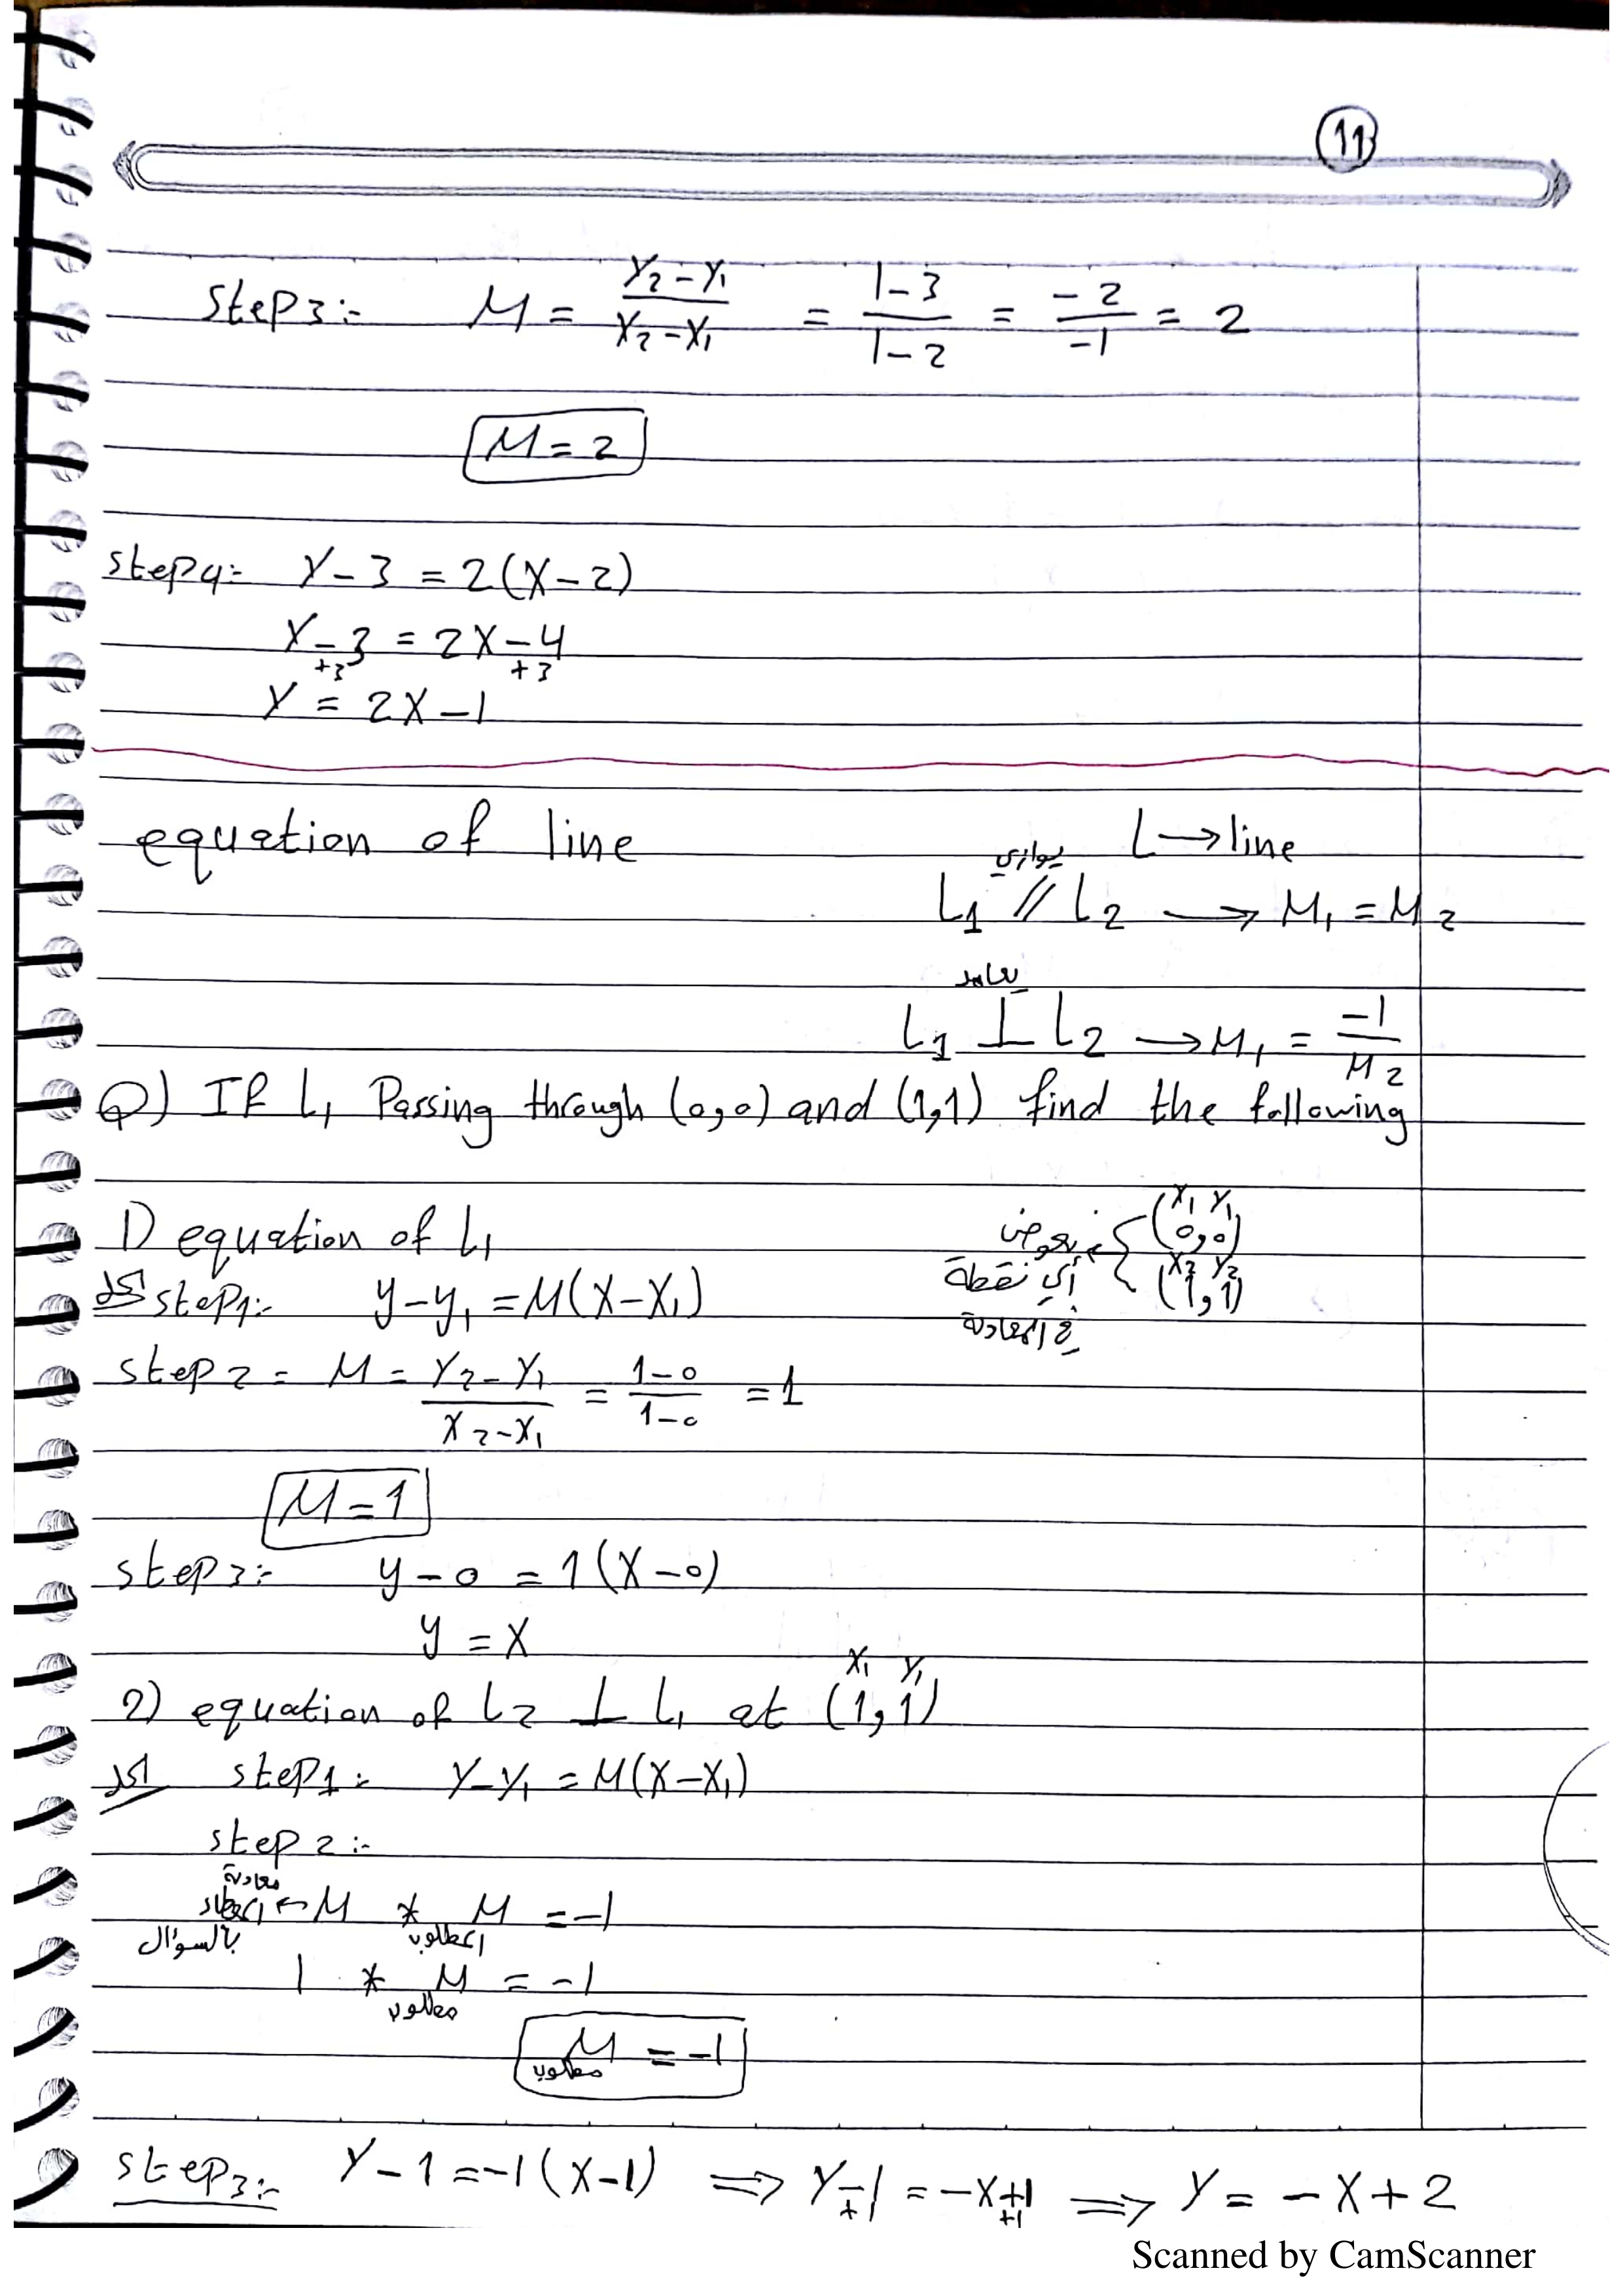 11
step3:- M = (Y₂-Y₁)/(X₂-X₁) = (1-3)/(1-2) = -2/-1 = 2
M = 2
step4:- Y-3 = 2(X-2)
Y-3 = 2X-4
+3 +3
Y = 2X-1
equation of line
L → line
يوازي
L₁ // L₂ → M₁ = M₂
يعامد
L₁ ⊥ L₂ → M₁ = -1/M₂
Q) If L₁ Passing through (0,0) and (1,1) find the following
1) equation of L₁
X₁ Y₁
(0,0)
X₂ Y₂
(1,1)
نعوض
أي نقطة
في المعادلة
الحل step1:- y-y₁ = M(X-X₁)
step2= M = (Y₂-Y₁)/(X₂-X₁) = (1-0)/(1-0) = 1
M = 1
step3:- y-0 = 1(X-0)
y = X
X₁ Y₁
2) equation of L₂ ⊥ L₁ at (1,1)
الحل step1:- Y-Y₁ = M(X-X₁)
step2:-
معادلة
بالسؤال ← M * M = -1
المطلوب
1 * M = -1
مطلوب
M = -1
مطلوب
step3:- Y-1 = -1(X-1) ⇒ Y-1 = -X+1 ⇒ Y = -X+2
+1 +1
Scanned by CamScanner